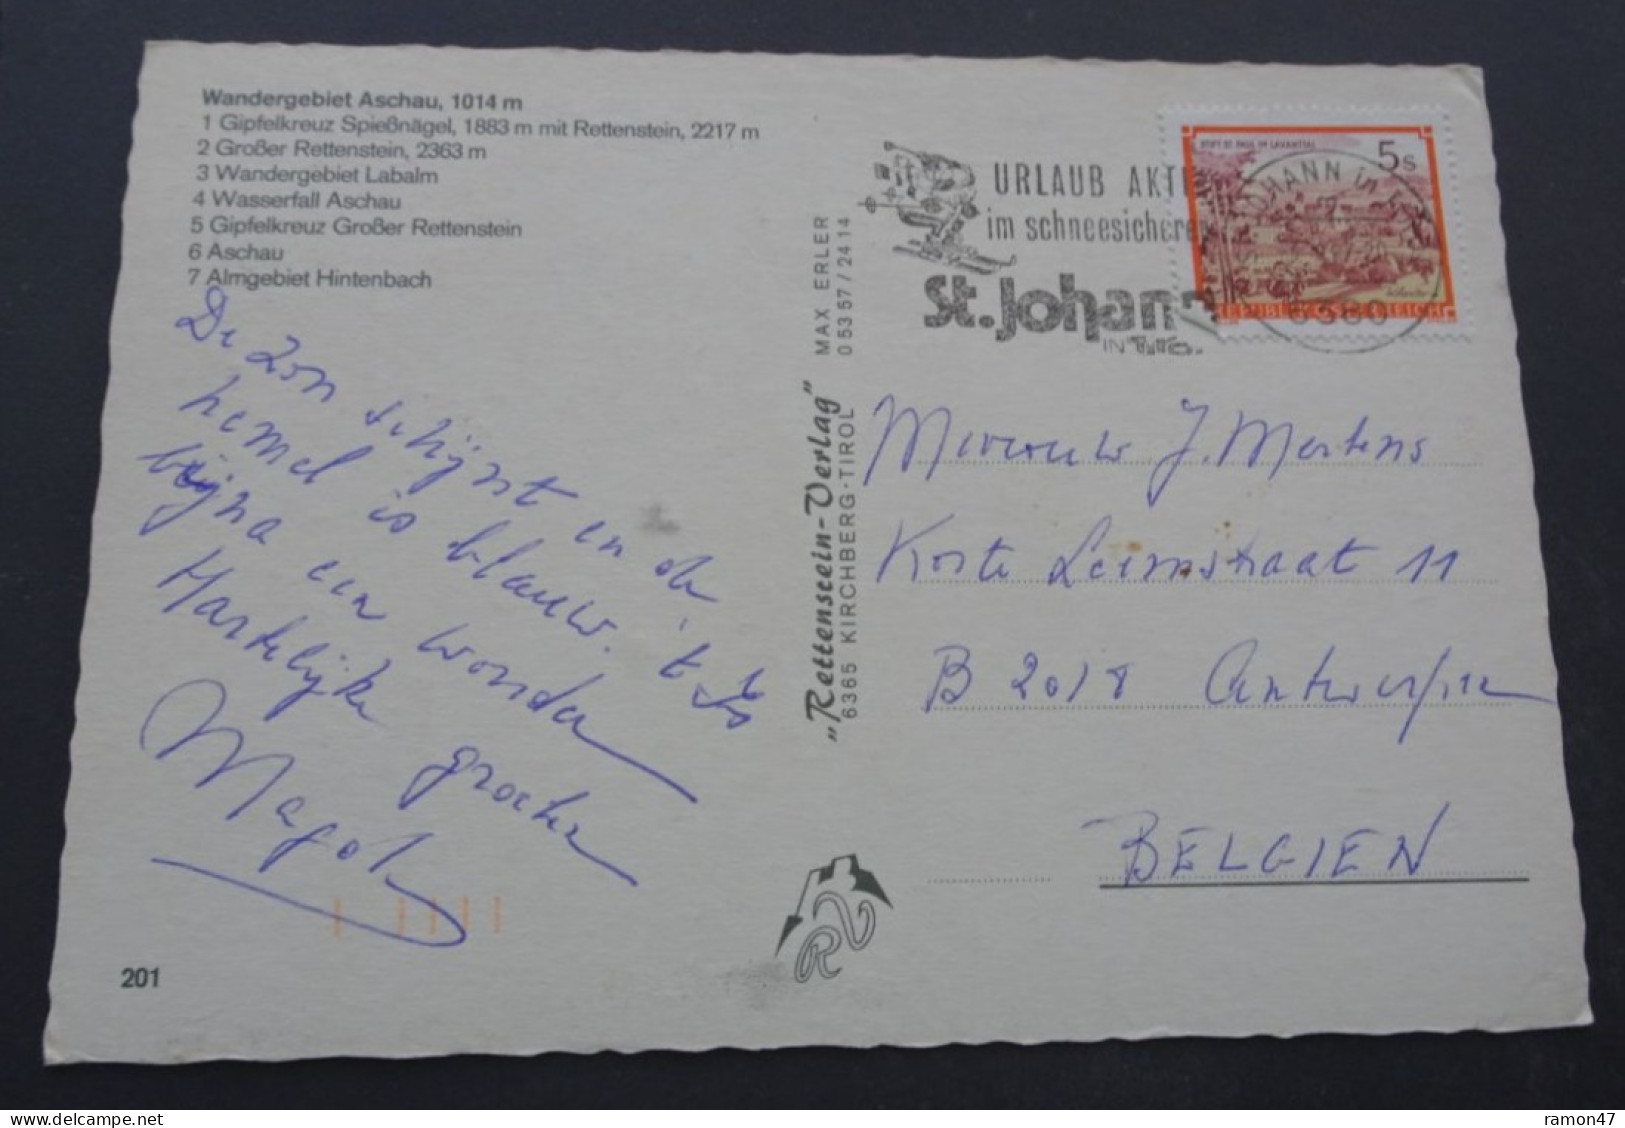 Wandergebiet Aschau, 1014 m
1 Gipfelkreuz Spießnägel, 1883 m mit Rettenstein, 2217 m
2 Großer Rettenstein, 2363 m
3 Wandergebiet Labalm
4 Wasserfall Aschau
5 Gipfelkreuz Großer Rettenstein
6 Aschau
7 Almgebiet Hintenbach
De zon schijnt en de
hemel is blauw. 't Is
bijna een wonder
Hartelijke groeten
Magda
201
MAX ERLER
05357/2414
„Rettenstein-Verlag"
6365 KIRCHBERG·TIROL
RV
URLAUB AKTI
im schneesichere
St. Johann
IN TIROL
STIFT ST. PAUL IM LAVANTTAL
5s
REPUBLIK ÖSTERREICH
JOHANN in T
6380
Mevrouw J. Mertens
Korte Leemstraat 11
B 2018 Antwerpen
BELGIEN
delcampe.net
ramon47